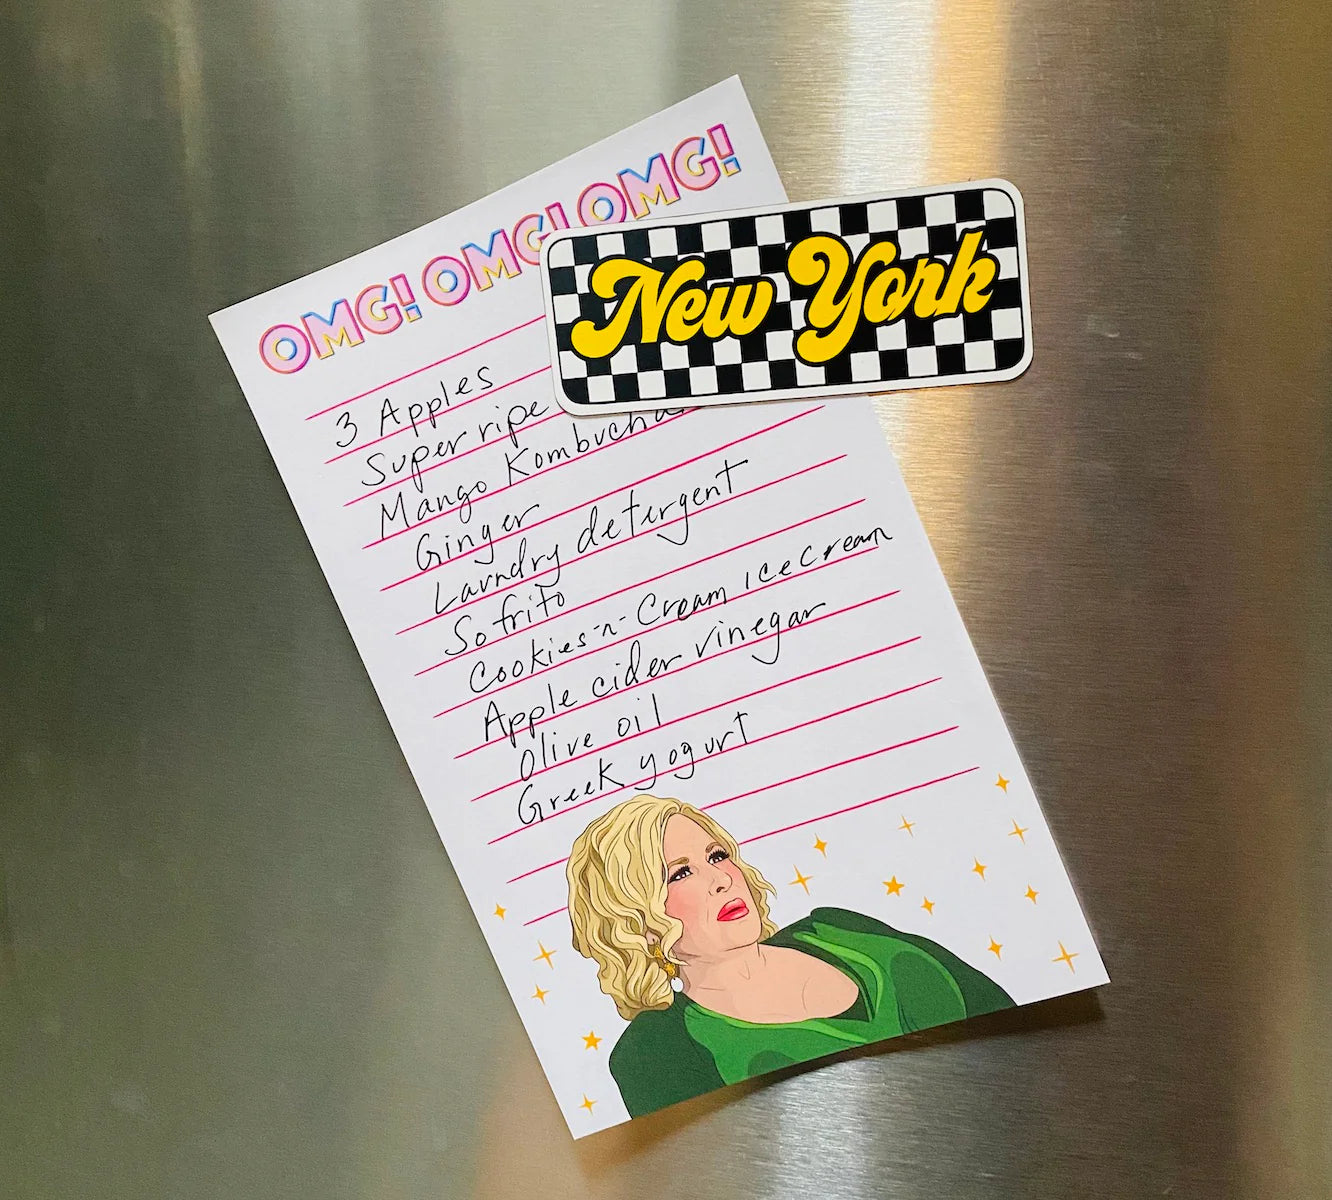 OMG! OMG! OMG!
New York
3 Apples
Super ripe
Mango Kombucha
Ginger
Laundry detergent
Sofrito
Cookies-n-Cream ice cream
Apple cider vinegar
Olive oil
Greek yogurt